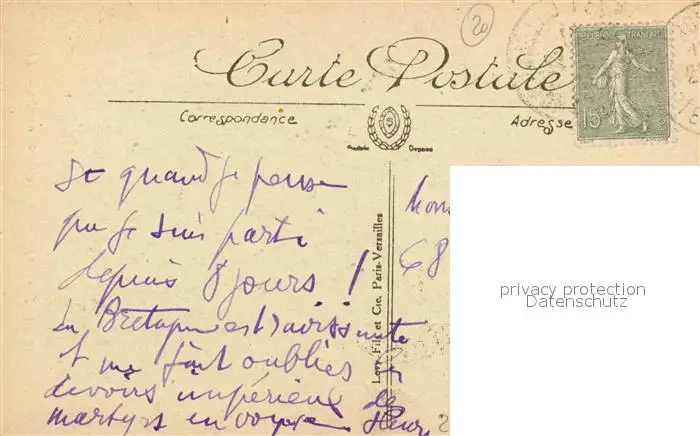 20
Carte Postale
REPUBLIQUE FRANÇAISE
15c
Correspondance
Adresse
Modèle Déposé
et quand je pense
que je suis parti
depuis 8 jours !
La Bretagne est ravissante
et me fait oublier les
devoirs impérieux de
martyrs en voyage Henri
Mons
68
Levy Fils et Cie, Paris-Versailles
privacy protection
Datenschutz